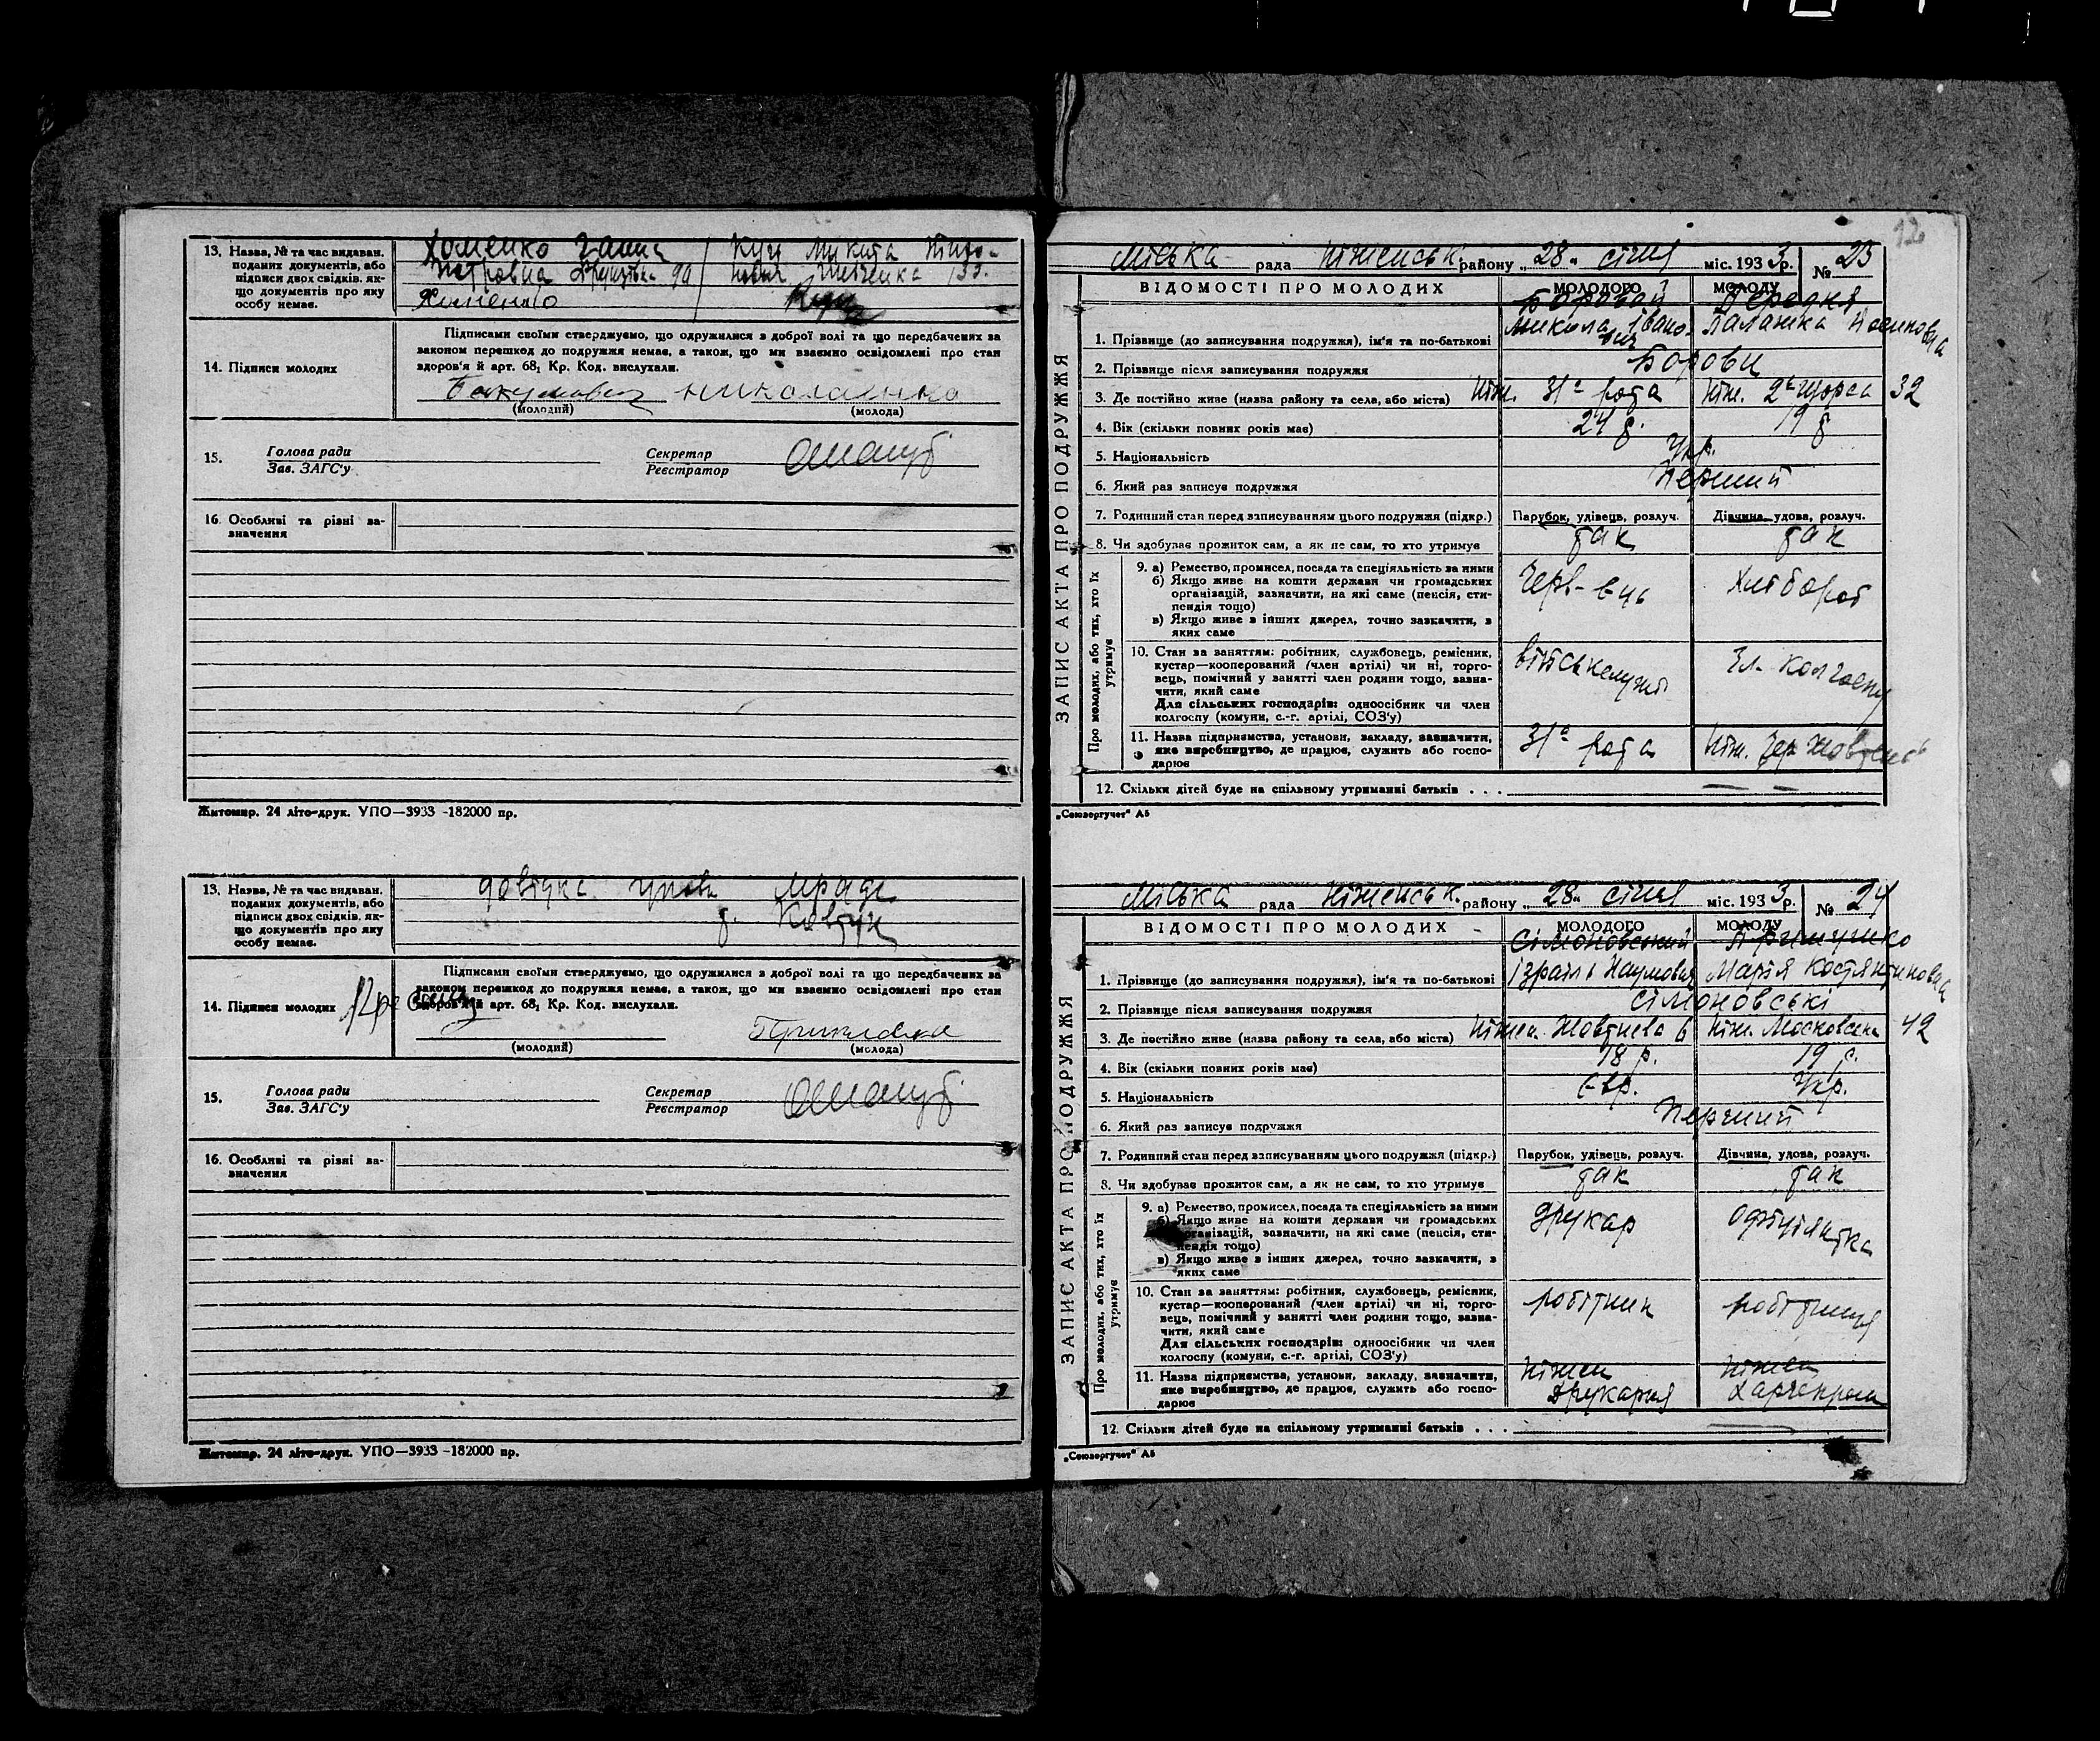 13. Назва, № та час видаван. поданих документів, або підписи двох свідків, якщо документів про яку особу немає.
Хоменко Ганна
Петровна
90
Кущ Микита
Шевченка 33.
Хоменко
14. Підписи молодих
Підписами своїми стверджуємо, що одружилися з доброї волі та що передбачених за
законом перешкод до подружжя немає, а також, що ми взаємно освідомлені про стан
здоров'я й арт. 68₁ Кр. Код. вислухали.
(молодий)
(молода)
15.
Голова ради
Зав. ЗАГС'у
Секретар
Реєстратор
16. Особливі та різні зазначення
Житомир. 24 літо-друк. УПО—3933 -182000 пр.
13. Назва, № та час видаван. поданих документів, або підписи двох свідків, якщо документів про яку особу немає.
довідка
14. Підписи молодих
Підписами своїми стверджуємо, що одружилися з доброї волі та що передбачених за
законом перешкод до подружжя немає, а також, що ми взаємно освідомлені про стан
здоров'я й арт. 68₁ Кр. Код. вислухали.
(молодий)
(молода)
15.
Голова ради
Зав. ЗАГС'у
Секретар
Реєстратор
16. Особливі та різні зазначення
Житомир. 24 літо-друк. УПО—3933 -182000 пр.
12
ЗАПИС АКТА ПРО ПОДРУЖЖЯ
Міська рада Ніженськ. району „28“ січня міс. 1933 р. № 23
ВІДОМОСТІ ПРО МОЛОДИХ
МОЛОДОГО
МОЛОДУ
1. Прізвище (до записування подружжя), ім'я та по-батькові
Боровий
Микола Івано-
вич
Палажка
2. Прізвище після записування подружжя
Борови
3. Де постійно живе (назва району та села, або міста)
Ніж. 31а рота
Ніж. 2а Щорса 32
4. Вік (скільки повних років має)
24 р.
19 р
5. Національність
Укр.
6. Який раз записує подружжя
Перший
7. Родинний стан перед записуванням цього подружжя (підкр.)
Парубок, удівець, розлуч.
Дівчина, удова, розлуч.
8. Чи здобуває прожиток сам, а як не сам, то хто утримує
так
так
Про молодих, або тих, хто їх утримує
9. а) Ремество, промисел, посада та спеціяльність за ними
б) Якщо живе на кошти держави чи громадських
організацій, зазначити, на які саме (пенсія, стипендія тощо)
в) Якщо живе в інших джерел, точно зазначити, в
яких саме
Черв-ець
Хлібороб
10. Стан за заняттям: робітник, службовець, ремісник,
кустар—кооперований (член артілі) чи ні, торговець, помічний у занятті член родини тощо, зазначити, який саме
Для сільських господарів: одноосібник чи член
колгоспу (комуни, с.-г. артілі, СОЗ'у)
військслужб
Чл. колгоспу
11. Назва підприємства, установи, закладу, зазначити,
яке виробництво, де працює, служить або господарює
31а рота
Ніж.
12. Скільки дітей буде на спільному утриманні батьків . . .
„Союзоргучет“ А5
ЗАПИС АКТА ПРО ПОДРУЖЖЯ
Міська рада Ніженськ. району „28“ січня міс. 1933 р. № 24
ВІДОМОСТІ ПРО МОЛОДИХ
МОЛОДОГО
МОЛОДУ
1. Прізвище (до записування подружжя), ім'я та по-батькові
Сімоновський
Ізраїль Наумович
Марія Костянтиновна
2. Прізвище після записування подружжя
Сімоновські
3. Де постійно живе (назва району та села, або міста)
Ніжен. Жовтнева 6
Ніж. Московська 42
4. Вік (скільки повних років має)
18 р.
19 р.
5. Національність
євр.
Укр.
6. Який раз записує подружжя
Перший
7. Родинний стан перед записуванням цього подружжя (підкр.)
Парубок, удівець, розлуч.
Дівчина, удова, розлуч.
8. Чи здобуває прожиток сам, а як не сам, то хто утримує
так
так
Про молодих, або тих, хто їх утримує
9. а) Ремество, промисел, посада та спеціяльність за ними
б) Якщо живе на кошти держави чи громадських
організацій, зазначити, на які саме (пенсія, стипендія тощо)
в) Якщо живе в інших джерел, точно зазначити, в
яких саме
друкар
10. Стан за заняттям: робітник, службовець, ремісник,
кустар—кооперований (член артілі) чи ні, торговець, помічний у занятті член родини тощо, зазначити, який саме
Для сільських господарів: одноосібник чи член
колгоспу (комуни, с.-г. артілі, СОЗ'у)
робітник
робітниця
11. Назва підприємства, установи, закладу, зазначити,
яке виробництво, де працює, служить або господарює
Ніжен
друкарня
Ніжен
Харчепром
12. Скільки дітей буде на спільному утриманні батьків . . .
„Союзоргучет“ А5